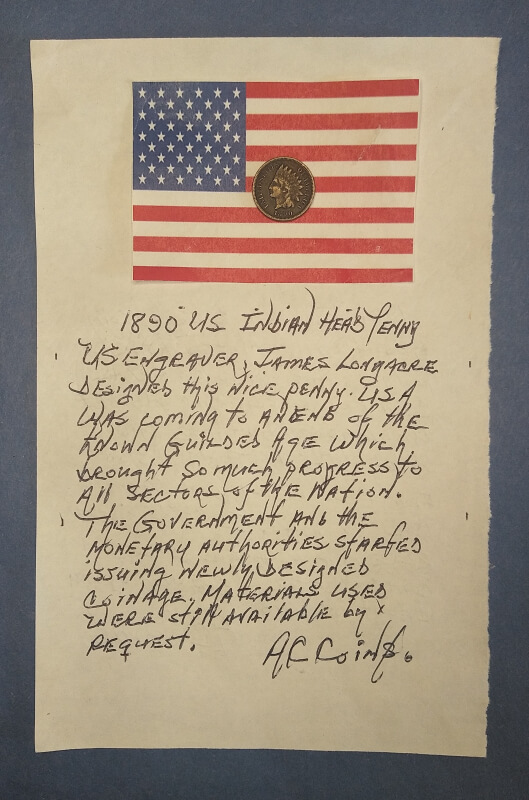 1890 US Indian Head Penny
US Engraver, James Longacre
Designed this nice penny. USA
was coming to an end of the
known Guilded Age which
brought so much progress to
all sectors of the Nation.
The Government and the
monetary authorities started
issuing newly designed
coinage. Materials used
were still available by
request.
AC Coins.